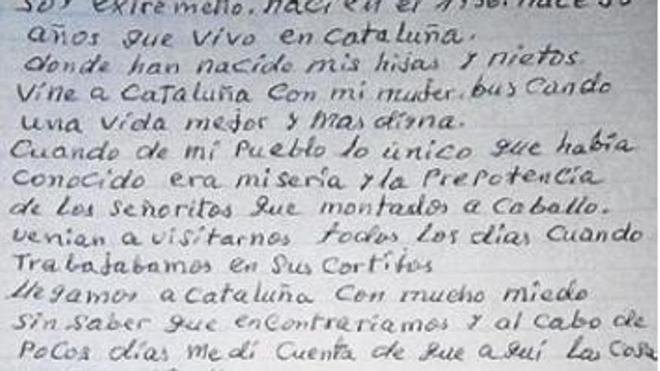 Soy extremeño. nací en el
años que vivo en Cataluña.
donde han nacido mis hijas y nietos.
Vine a Cataluña Con mi mujer. buscando
una vida mejor y mas digna.
Cuando de mi Pueblo lo único que había
Conocido era miseria y la Prepotencia
de los señoritos que montados a Caballo.
venian a visitarnos todos los días Cuando
Trabajabamos en sus Cortijos
llegamos a Cataluña Con mucho miedo
sin saber que encontrariamos y al Cabo de
Pocos días me di Cuenta de que aquí las Cosa